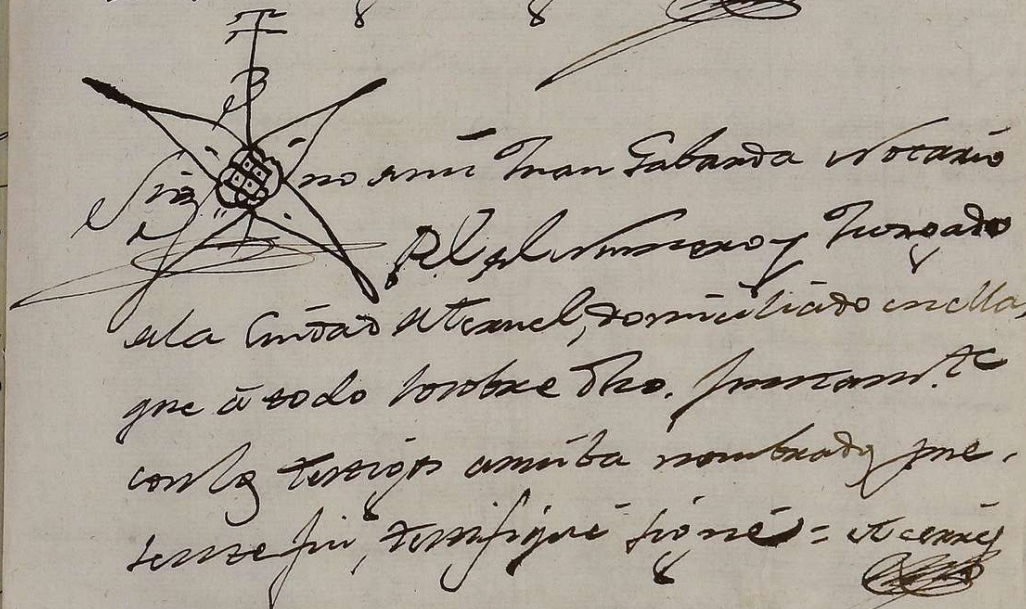 Sig no de mi Juan Gabarda Notario
Rl. del Numero y Juzgado
de la Ciudad de Teruel, domiciliado en ella,
que á todo lo sobre dho. juntam.te
con los testigos arriba nombrados pre-
sente fui, testifiqué signé =